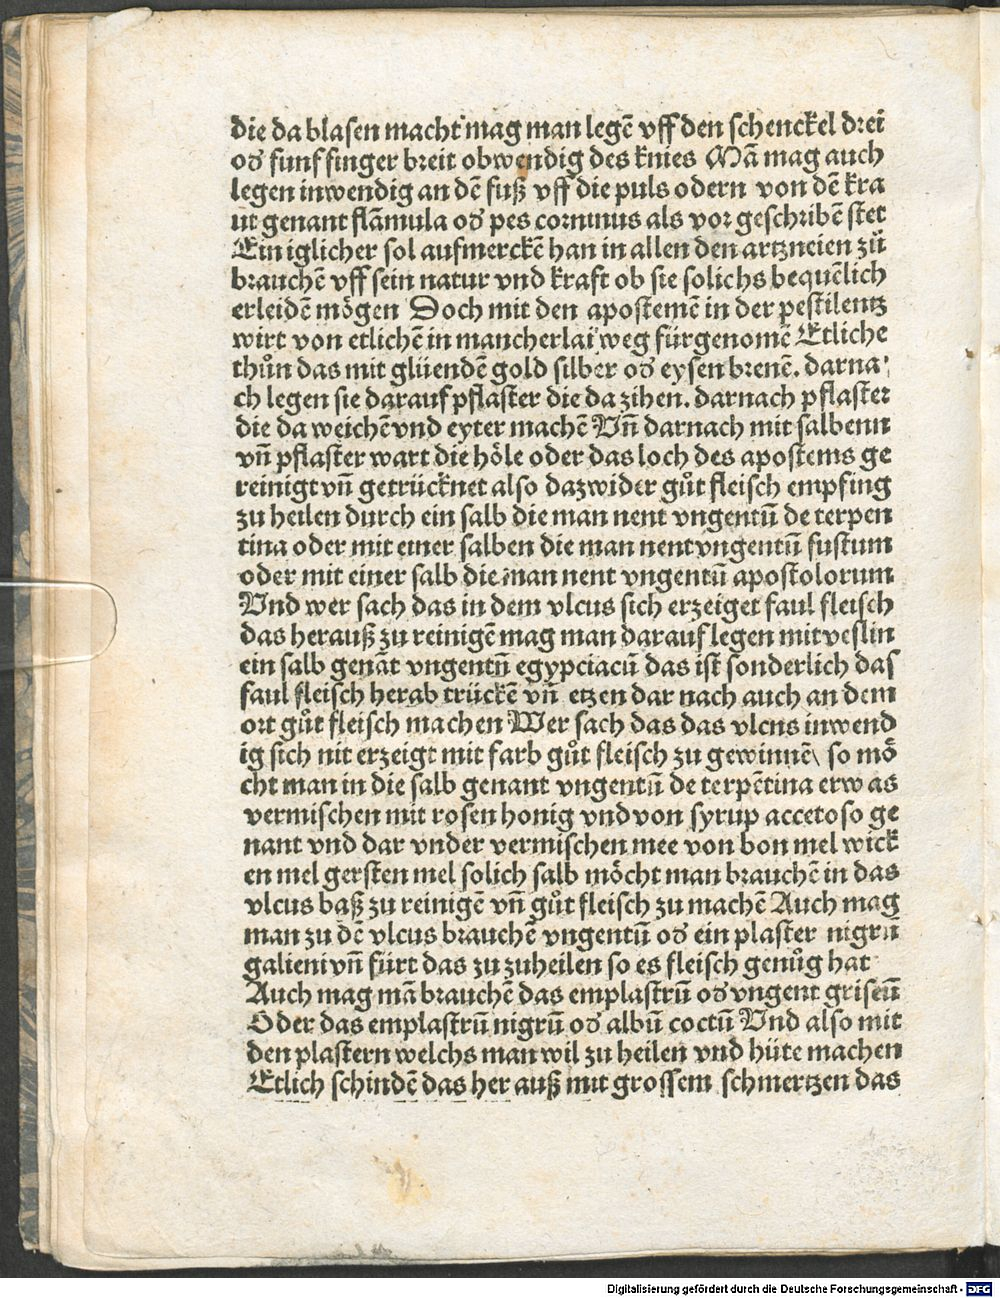 die da blasen macht mag man legē vff den schenckel drei
oď funf finger breit obwendig des knies Mā mag auch
legen inwendig an dē fuß vff die puls odern von dē kra
ut genant flāmula oď pes corninus als vor geschribē stet
Ein iglicher sol aufmerckē han in allen den artzneien zů
brauchē vff sein natur vnd kraft ob sie solichs bequēlich
erleidē mögen Doch mit den apostemē in der pestilentz
wirt von etlichē in mancherlai weg fürgenomē Etliche
thůn das mit glüendē gold silber oď eysen brenē. darna
ch legen sie darauf pflaster die da zihen. darnach pflaster
die da weichē vnd eyter machē Vn̄ darnach mit salbenn
vn̄ pflaster wart die höle oder das loch des apostems ge
reinigt vn̄ getrücknet also dazwider gůt fleisch empfing
zu heilen durch ein salb die man nent vngentū de terpen
tina oder mit einer salben die man nent vngentū fustum
oder mit einer salb die man nent vngentū apostolorum
Vnd wer sach das in dem vlcus sich erzeiget faul fleisch
das herauß zu reinigē mag man darauf legen mit veslin
ein salb genāt vngentū egypciacū das ist sonderlich das
faul fleisch herab trückē vn̄ etzen dar nach auch an dem
ort gůt fleisch machen Wer sach das das vlcns inwend
ig sich nit erzeigt mit farb gůt fleisch zu gewinnē\ so mö
cht man in die salb genant vngentū de terpētina erw as
vermischen mit rosen honig vnd von syrup accetoso ge
nant vnd dar vnder vermischen mee von bon mel wick
en mel gersten mel solich salb möcht man brauchē in das
vlcus baß zu reinigē vn̄ gůt fleisch zu machē Auch mag
man zu dē vlcus brauchē vngentū oď ein plaster nigrū
galieni vn̄ fürt das zu zuheilen so es fleisch genůg hat
Auch mag mā brauchē das emplastrū oď vngent griseū
Oder das emplastrū nigrū oď albū coctū Vnd also mit
den plastern welchs man wil zu heilen vnd hüte machen
Etlich schindē das her auß mit grossem schmertzen das
Digitalisierung gefördert durch die Deutsche Forschungsgemeinschaft - DFG